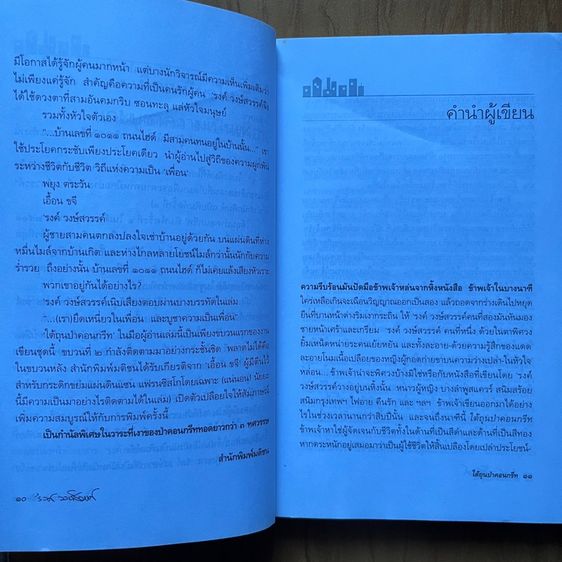 มีโอกาสได้รู้จักผู้คนมากหน้า แต่บางนักวิจารณ์มีความเห็นเพิ่มเติมว่า
ไม่เพียงแค่รู้จัก สำคัญคือความที่เป็นคนรักผู้คน 'รงค์ วงษ์สวรรค์จึง
ได้ใช้ดวงตาที่สามอันคมกริบ ซอนทะลุ แล่หัวใจมนุษย์
รวมทั้งหัวใจตัวเอง
"...บ้านเลขที่ ๑๐๑๑ ถนนไฮด์ มีสามคนทนอยู่ในบ้านนั้น..." เขา
ใช้ประโยคกระชับเพียงประโยคเดียว นำผู้อ่านไปสู่วิถีของความผูกพัน
ระหว่างชีวิตกับชีวิต วิถีแห่งความเป็น 'เพื่อน'
พยุง ตระวัน
เอื้อน ขจี
'รงค์ วงษ์สวรรค์
ผู้ชายสามคนตกลงปลงใจเช่าบ้านอยู่ด้วยกัน บนแผ่นดินที่ห่าง
หมื่นไมล์จากบ้านเกิด และห่างไกลหลายโยชน์ไมล์กว่านั้นนักกับความ
ร่ำรวย ถึงอย่างนั้น บ้านเลขที่ ๑๐๑๑ ถนนไฮด์ ก็ไม่เคยแล้งเสียงหัวเราะ
พวกเขาอยู่กันได้อย่างไร?
'รงค์ วงษ์สวรรค์เน้บเสียงตอบผ่านบางบรรทัดในเล่ม
"...(เรา)ยึดเหนี่ยวในเพื่อน และบูชาความเป็นเพื่อน"
'ใต้ถุนป่าคอนกรีท' ในมือผู้อ่านเล่มนี้เป็นเพียงขบวนแรกของงาน
เขียนชุดนี้ ขบวนที่ ๒ กำลังติดตามมาอย่างกระชั้นชิด พลาดไม่ได้คือ
ในขบวนหลัง สำนักพิมพ์มติชนได้รับเกียรติจาก เอื้อน ขจี ผู้มีดินไว้
สำหรับกระดิกขย่มแผ่นดินแซ่น แฟรนซิสโกโดยเฉพาะ (แน่นอน! นัยยะ
นี้มีความเป็นมาอย่างไรติดตามได้ในเล่ม) เปิดตัวเปลือยใจให้สัมภาษณ์
เพิ่มความสมบูรณ์ให้กับการพิมพ์ครั้งนี้
เป็นกำนัลพิเศษในวาระที่เงาของป่าคอนกรีททอดยาวกว่า ๓ ทศวรรษ
สำนักพิมพ์มติชน
๑๐
คำนำผู้เขียน
ความรีบร้อนมันปัดมือข้าพเจ้าหล่นจากหิ้งหนังสือ ข้าพเจ้าในบางนาที
ใคร่เหลือเกินจะเฉือนวิญญาณออกเป็นสอง แล้วถอดจากร่างเดินไปหยุด
ยืนที่บานหน้าต่างริมเงากระถิน ให้ 'รงค์ วงษ์สวรรค์คนที่สองมันหันมอง
ชายหน้าเคร้าและเกรียม 'รงค์ วงษ์สวรรค์ คนที่หนึ่ง ด้วยในตาพิศวง
ยิ้มเหน็ดหน่ายระคนเย้ยหยัน และทั้งละอาย-ด้วยความรู้สึกของแดด
ละอายในมเนื้อเปลือยของหญิงผู้กอดก่ายขาบความว่างเปล่า-ในหัวใจ
หล่อน...ข้าพเจ้าน่าจะพิศวงบ้างมิใช่หรือกับหนังสือที่เขียนโดย 'รงค์
วงษ์สวรรค์วางอยู่บนหิ้งนั้น หนาวผู้หญิง บางลำพูสแควร์ สนิมสร้อย
สนิมกรุงเทพฯ ไฟอาย คืนรัก และ ฯลฯ ข้าพเจ้าเขียนออกมาได้อย่าง
ไรในช่วงเวลานานกว่าสิบปีนั้น และจนถึงนาทีนี้ ใต้ถุนป่าคอนกรีท
ข้าพเจ้าหาใช่ผู้จัดเจนกับชีวิตทั้งในด้านที่เป็นสีดำและด้านที่เป็นสีทอง
หากตระหนักอยู่เสมอมาว่าเป็นผู้ใช้ชีวิตให้สิ้นเปลืองโดยเปล่าประโยชน์-
ใต้ถุนป่าคอนกรีท ๑๑